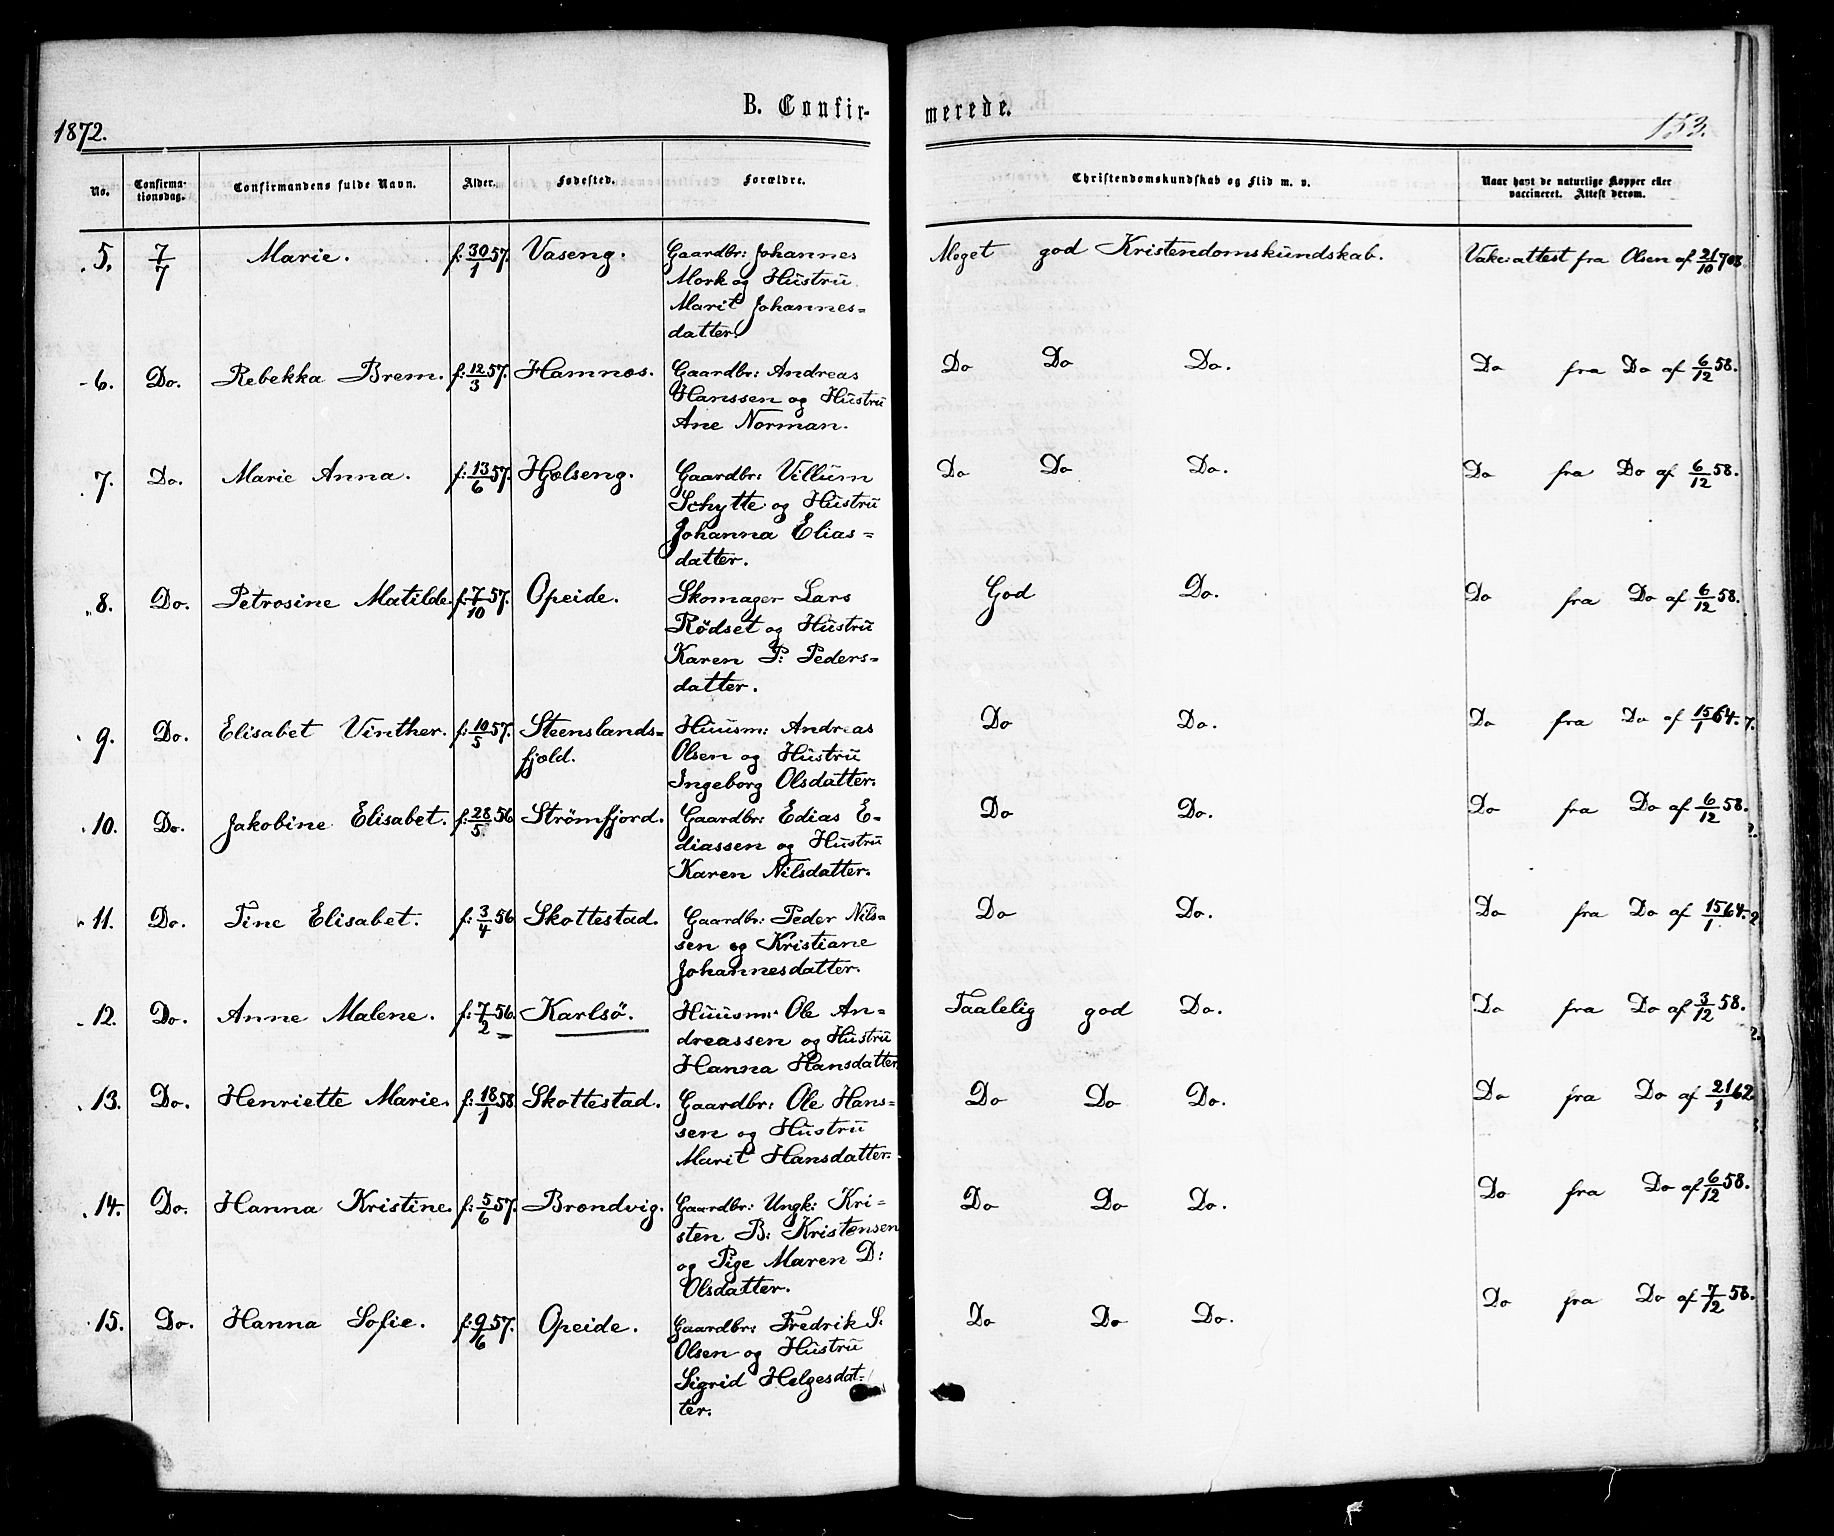 1872.
B. Confirmerede.
153.
No. Confirmationsdag. Confirmandens fulde Navn. Alder. Fødested. Forældre. Christendomskundskab og Flid m. v. Naar havt de naturlige Kopper eller vaccineret. Attest derom.
5. 7/7 Marie. f: 30/1 57. Vaseng. Gaardbr: Johannes Meget god Kristendomskundskab. Vakc: attest fra Olsen af 21/10
Mork og Hustru
Marit Johannes=
datter.
6. Do. Rebekka Brem. f: 12/3 57. Hamnæs. Gaardbr: Andreas Do Do Do. Do fra Do af 6/12 58.
Hanssen og Hustru
Ane Norman.
7. Do. Marie Anna. f: 13/6 57. Hjelseng. Gaardbr: Villum Do Do Do. Do fra Do af 6/12 58.
Schytte og Hustru
Johanna Elias=
datter.
8. Do. Petrosine Matilde. f: 7/10 57. Opeide. Skomager Lars God Do. Do fra Do af 6/12 58.
Rödset og Hustru
Karen P: Peders=
datter.
9. Do. Elisabet Vinther. f: 10/5 57. Steenslands= Huusm: Andreas Do Do. Do fra Do af 15/1 64.
fjeld. Olsen og Hustru
Ingeborg Olsdatter.
10. Do. Jakobine Elisabet. f: 28/5 56 Strömfjord. Gaardbr: Edias E= Do Do. Do fra Do af 6/12 58.
diassen og Hustru
Karen Nilsdatter.
11. Do. Tine Elisabet. f: 3/4 56 Skottestad. Gaardbr: Peder Nils= Do Do. Do fra Do af 15/1 64.
sen og Kristiane
Johannesdatter.
12. Do. Anne Malene. f: 7/2 56. Karlsö. Huusm: Ole An= Taalelig god Do. Do fra Do af 3/12 58.
dreassen og Hustru
Hanna Hansdatter
13. Do. Henriette Marie. f: 18/1 58 Skottestad. Gaardbr: Ole Hans= Do Do Do. Do fra Do af 21/1 62.
sen og Hustru
Marit Hansdatter.
14. Do. Hanna Kristine. f: 5/6 57. Brændvig. Gaardbr: Ungk: Kri= Do Do Do. Do fra Do af 6/12 58.
sten B: Kristensen
og Pige Maren D:
Olsdatter.
15. Do. Hanna Sofie. f: 9/6 57. Opeide. Gaardbr: Fredrik S: Do Do Do. Do fra Do af 7/12 58.
Olsen og Hustru
Sigrid Helgesdat=
ter.